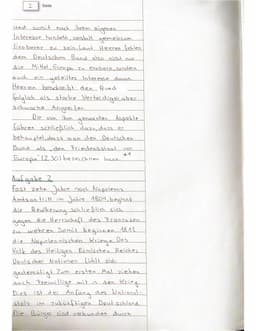 1 Seite
Und somit nach ihrem eigenen
Interesse handeln, anstatt gemeinsam
Eroberer zu sein. Laut Heeren fehlen
dem Deutschen Bund also nicht nur
die Mittel, Europa zu erobern, sondern
auch ein geteiltes Interesse daran.
Heeren beschreibt den Bund
folglich als starke Verteidiger, aber
schwache Angreifer.
Die von ihm genannten Aspekte
führen schließlich dazu, dass er
behauptet, dass man den Deutschen
Bund als „den Friedensstaat von
Europa“ (Z. 30) bezeichnen kann.
Aufgabe 2
Fast zehn Jahre nach Napoleons
Amtsantritt im Jahre 1804, beginnt
die Bevölkerung schließlich sich
gegen die Herrschaft des Franzosen
zu wehren. Somit beginnen 1813
die Napoleonischen Kriege. Das
Volk des Heiligen Römischen Reiches
Deutscher Nationen fühlt sich
gedemütigt. Zum ersten Mal ziehen
auch Freiwillige mit in den Krieg.
Dies ist der Anfang des Nationali-
staats im zukünftigen Deutschland.
Die Bürger sind verbunden durch